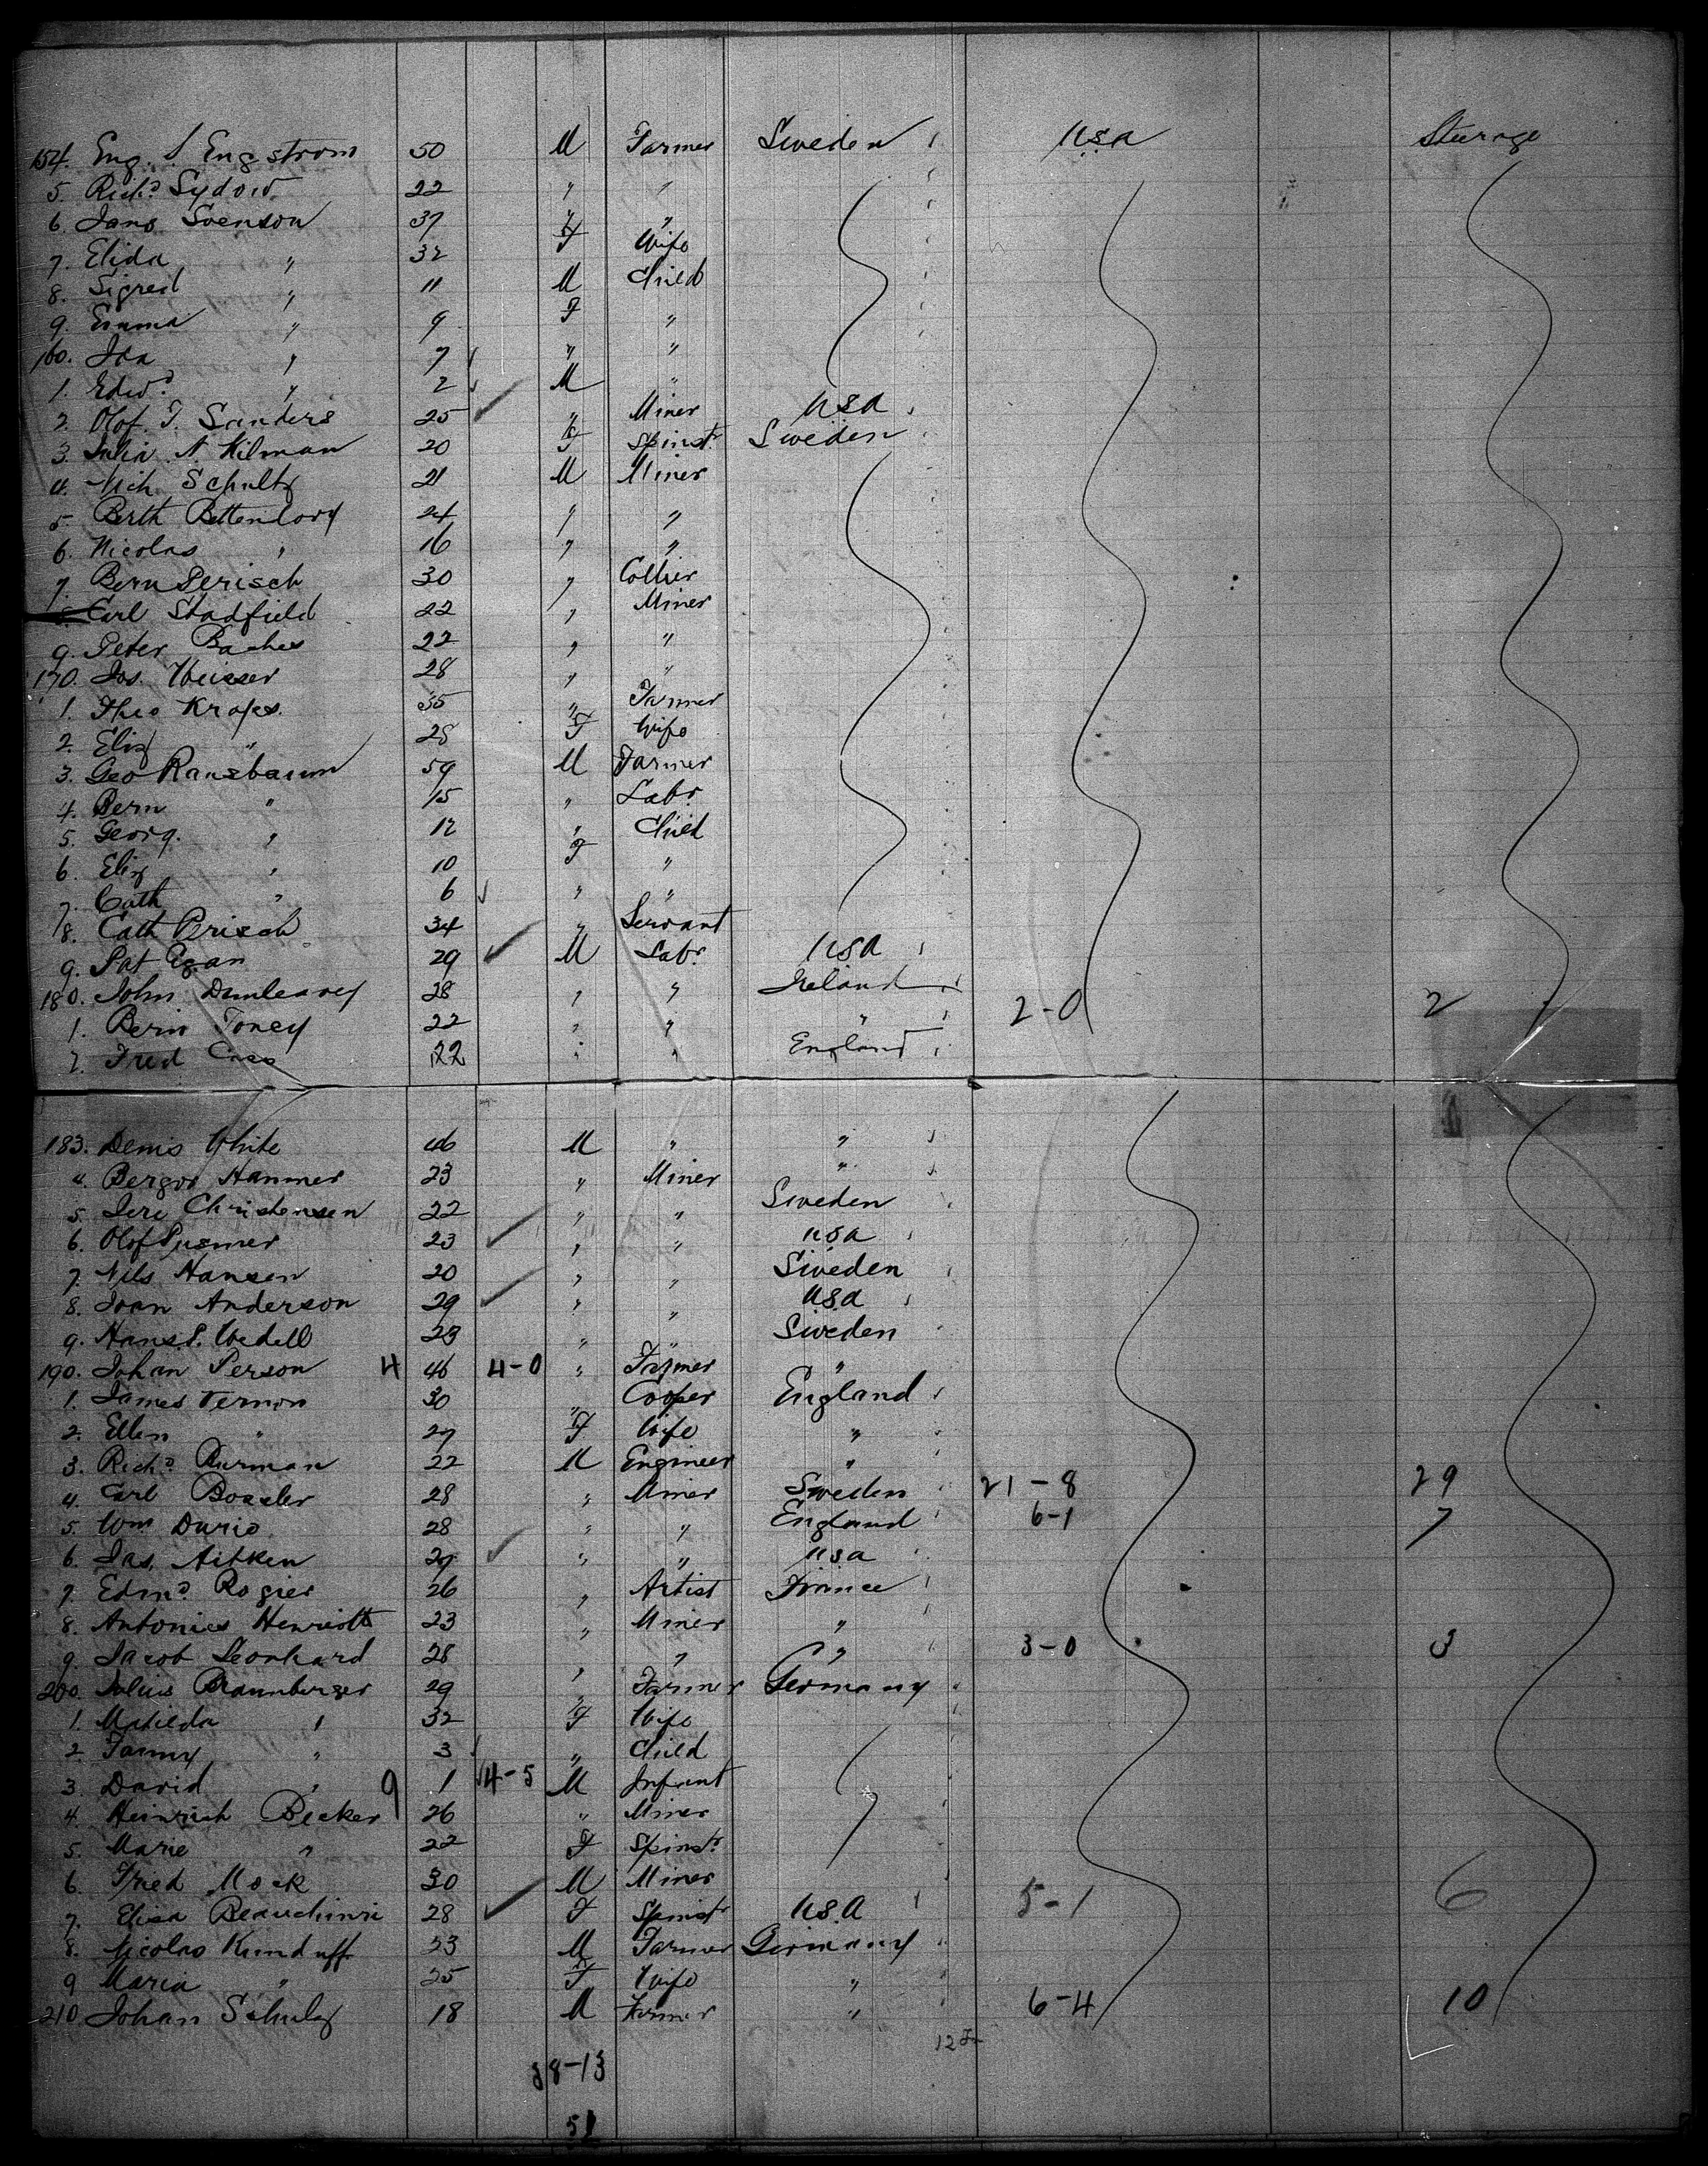 154. Eng. S. Engstrom 50 M Farmer Sweden USA Steerage
5. Richd Sydow 22 " "
6. Jans Svenson 37 " "
7. Elida " 32 F Wife
8. Sigred " 11 M Child
9. Emma " 9 F "
160. Ida " 7 " "
1. Edwd " 2 M "
2. Olof. T. Sanders 25 " Miner USA
3. Julia N. Hilman 20 F Spinstr Sweden
4. Nich Schultz 21 M Miner
5. Berth Bettendorf 24 " "
6. Nicolas " 16 " "
7. Bern Perisch 30 " Collier
8. Carl Stadfield 22 " Miner
9. Peter Baches 22 " "
170. Jos. Weisser 28 " "
1. Theo Kraps. 35 " Farmer
2. Eliz " 28 F Wife
3. Geo Ransbaum 59 M Farmer
4. Bern " 15 " Labr.
5. Georg. " 12 " Child
6. Eliz " 10 F "
7. Cath " 6 " "
8. Cath Perisch 34 " Servant
9. Pat Egan 29 M Labr. USA
180. John Dunleavey 28 " " Ireland 2-0 2
1. Bern Toney 22 " " "
2. Fred Cass 22 " " England
183. Denis White 46 M " "
4. Bergor Hammer 23 " Miner "
5. Jere Christensen 22 " " Sweden
6. Olof 23 " " USA
7. Nils Hansen 20 " " Sweden
8. Joan Anderson 29 " " USA
9. Hans P. Wedell 23 " " Sweden
190. Johan Person 4 46 4-0 " Farmer "
1. James Vernon 30 " Cooper England
2. Ellen " 27 F Wife "
3. Richd Burman 22 M Engineer "
4. Carl Bossler 28 " Miner Sweden 21-8 29
5. Wm Durie 28 " " England 6-1 7
6. Jas. Aitken 27 " " USA
7. Edmd Rogier 26 " Artist France
8. Antonies Henriott 23 " Miner "
9. Jacob Leonhard 28 " " " 3-0 3
200. Julius Braunberger 29 " Farmer Germany
1. Matilda " 32 F Wife
2. Fanny " 3 " Child
3. David " 9 1 4-5 M Infant
4. Heinrich Becker 26 " Miner
5. Marie " 22 F Spinstr
6. Fried Mock 30 M Miner
7. Elisa 28 F Spinstr USA 5-1 6
8. Nicolas Kunduff 23 M Farmer Germany
9 Maria " 25 F Wife "
210 Johan Schulz 18 M Farmer " 6-4 10
38-13
51